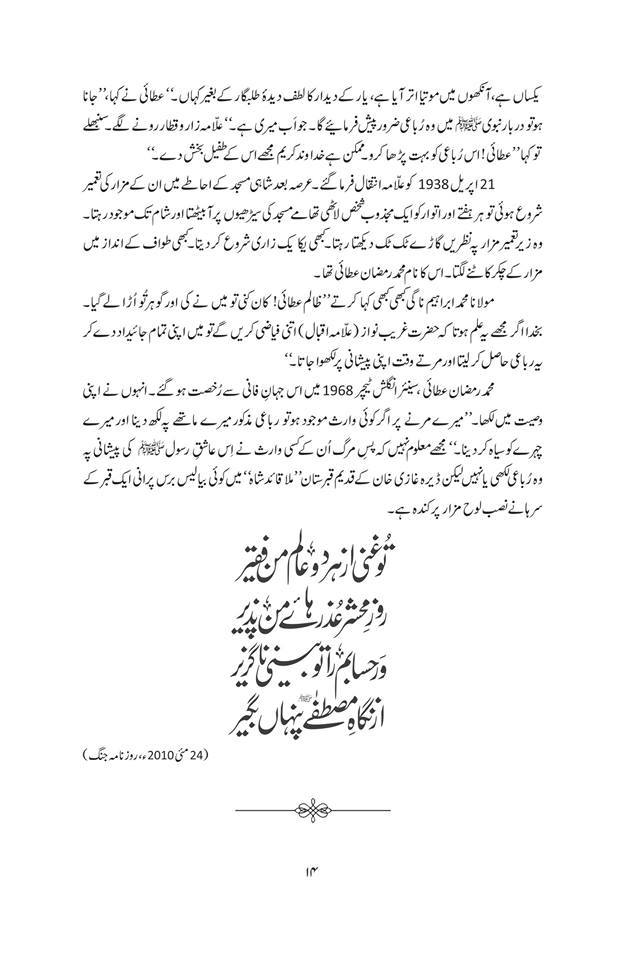 یکساں ہے، آنکھوں میں موتیا اتر آیا ہے، یار کے دیدار کا لطف دیدۂ طلبگار کے بغیر کہاں۔‘‘ عطائی نے کہا، ’’جانا
ہو تو دربار نبوی ﷺ میں وہ رُباعی ضرور پیش فرمائیے گا۔ جو اب میری ہے۔‘‘ علّامہ زار و قطار رونے لگے۔ سنبھلے
تو کہا ’’عطائی! اس رُباعی کو بہت پڑھا کرو۔ ممکن ہے خداوند کریم مجھے اس کے طفیل بخش دے۔‘‘
21 اپریل 1938 کو علّامہ انتقال فرما گئے۔ عرصہ بعد شاہی مسجد کے احاطے میں ان کے مزار کی تعمیر
شروع ہوئی تو ہر ہفتے اور اتوار کو ایک مجذوب شخص لاٹھی تھامے مسجد کی سیڑھیوں پر آ بیٹھتا اور شام تک موجود رہتا۔
وہ زیر تعمیر مزار پہ نظریں گاڑے ٹک ٹک دیکھتا رہتا۔ کبھی یکا یک زاری شروع کر دیتا۔ کبھی طواف کے انداز میں
مزار کے چکر کاٹنے لگتا۔ اس کا نام محمد رمضان عطائی تھا۔
مولانا محمد ابراہیم ناگی کبھی کبھی کہا کرتے ’’ظالم عطائی! کان کنی تو میں نے کی اور گوہر تُو اُڑا لے گیا۔
بخدا اگر مجھے یہ علم ہوتا کہ حضرت غریب نواز (علّامہ اقبال) اتنی فیاضی کریں گے تو میں اپنی تمام جائیداد دے کر
یہ رباعی حاصل کر لیتا اور مرتے وقت اپنی پیشانی پر لکھوا جاتا۔‘‘
محمد رمضان عطائی، سینئر انگلش ٹیچر 1968 میں اس جہانِ فانی سے رُخصت ہو گئے۔ انہوں نے اپنی
وصیت میں لکھا۔ ’’میرے مرنے پر اگر کوئی وارث موجود ہو تو رباعی مذکور میرے ماتھے پہ لکھ دینا اور میرے
چہرے کو سیاہ کر دینا۔‘‘ مجھے معلوم نہیں کہ پسِ مرگ اُن کے کسی وارث نے اِس عاشقِ رسول ﷺ کی پیشانی پہ
وہ رُباعی لکھی یا نہیں لیکن ڈیرہ غازی خان کے قدیم قبرستان ’’ملا قائد شاہ‘‘ میں کوئی بیالیس برس پرانی ایک قبر کے
سرہانے نصب لوح مزار پر کندہ ہے۔
تُو غنی از ہر دو عالم من فقیر
روزِ محشر عُذر ہائے من پذیر
ور حسابم را تو بینی ناگزیر
از نگاہِ مصطفےٰ ﷺ پنہاں بگیر
(24 مئی 2010ء، روزنامہ جنگ)
۱۴